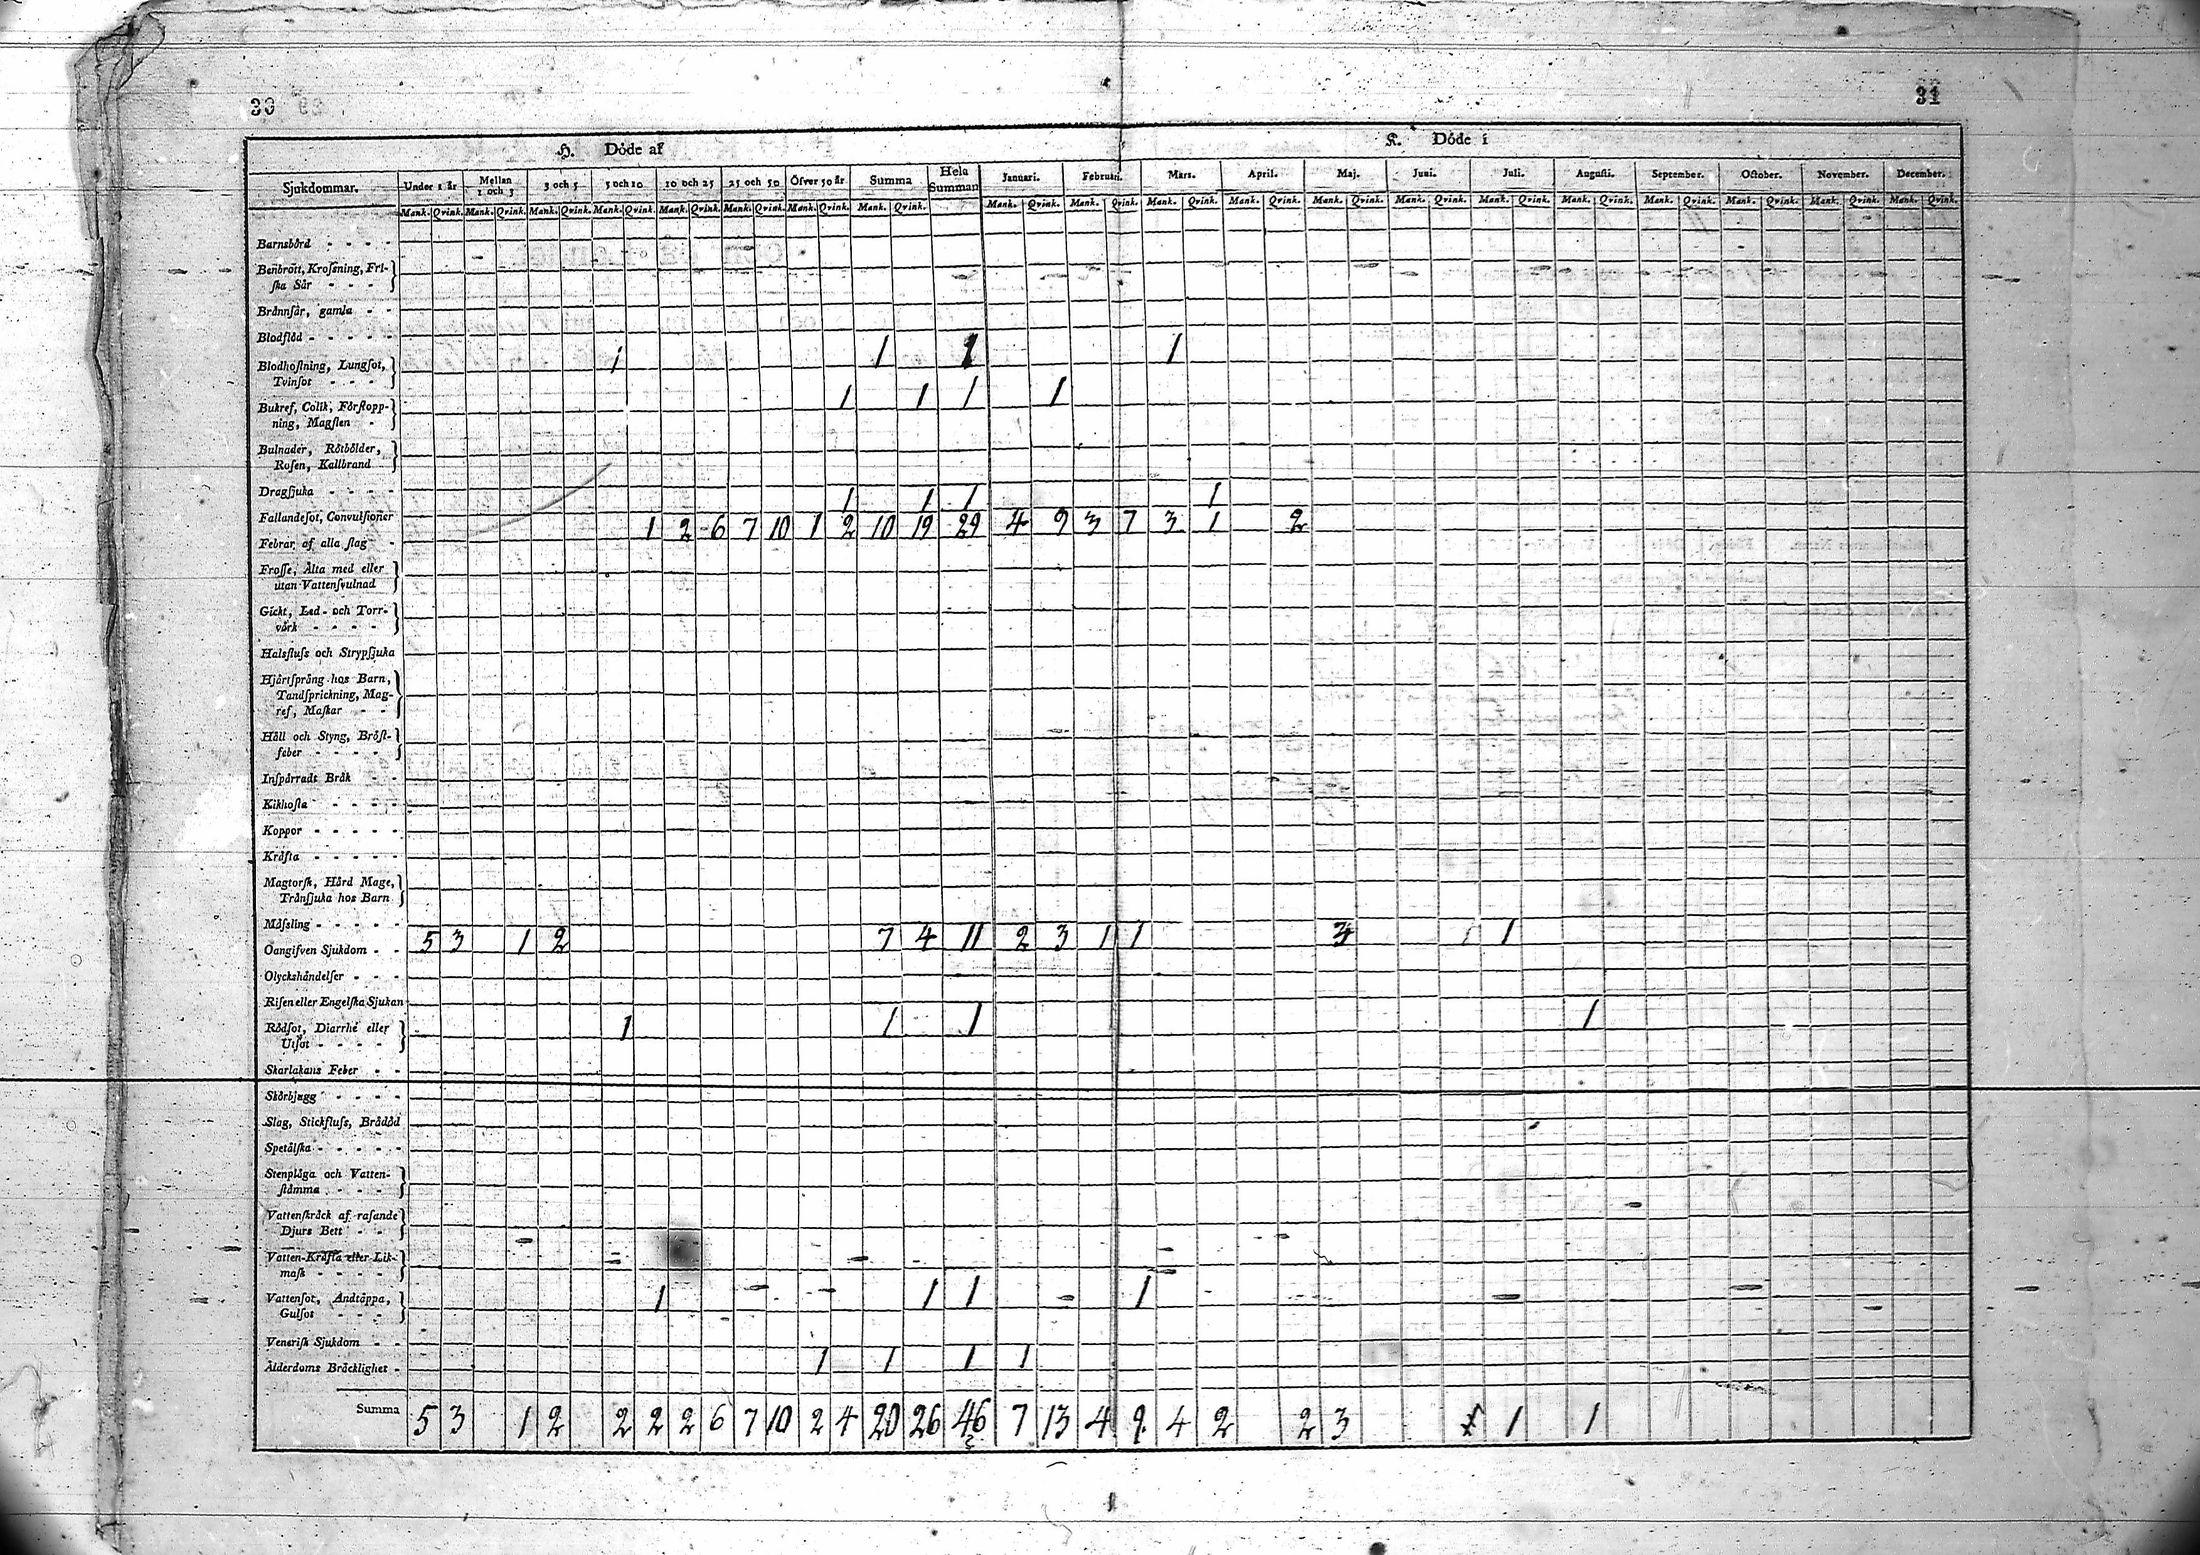 30 31
H. Döde af K. Döde i
Sjukdommar. Under 1 år Mellan 1 och 3 3 och 5 5 och 10 10 och 25 25 och 50 Öfver 50 år Summa Hela Summan Januari. Februari. Mars. April. Maj. Juni. Juli. Augusti. September. October. November. December.
Mank. Qvink. Mank. Qvink. Mank. Qvink. Mank. Qvink. Mank. Qvink. Mank. Qvink. Mank. Qvink. Mank. Qvink. Mank. Qvink. Mank. Qvink. Mank. Qvink. Mank. Qvink. Mank. Qvink. Mank. Qvink. Mank. Qvink. Mank. Qvink. Mank. Qvink. Mank. Qvink. Mank. Qvink. Mank. Qvink.
Barnsbörd - - - -
Benbrott, Krosning, Fri-
ska Sår - - -
Brännsår, gamla - -
Blodflöd - - - - -
Blodhostning, Lungsot, 1 1 1 1
Tvinsot - - - -
1 1 1 1
Bukref, Colik, Förstopp-
ning, Magsten -
Bulnader, Rötbölder,
Rosen, Kallbrand
Dragsjuka - - - - 1 1 1 1
Fallandesot, Convulsioner
Febrar af alla slag - 1 2 6 7 10 1 2 10 19 29 4 9 3 7 3 1 2
Frosse, Älta med eller
utan Vattensvulnad
Gickt, Led- och Torr-
värk - - - -
Halsfluss och Strypsjuka
Hjärtsprång hos Barn,
Tandsprickning, Mag-
ref, Maskar - -
Håll och Styng, Bröst-
feber - - - -
Inspärradt Bråk - -
Kikhosta - - - -
Koppor - - - - -
Kräfta - - - - -
Magtorsk, Hård Mage,
Tränsjuka hos Barn
Mässling - - - - -
Oangifven Sjukdom - - 5 3 1 2 7 4 11 2 3 1 1 3 1 1
Olyckshändelser - - -
Risen eller Engelska Sjukan
Rödsot, Diarrhé eller 1 1 1 1
Utsot - - - -
Skarlakans Feber - -
Skörbjugg - - - -
Slag, Stickfluss, Brådöd
Spetälska - - - - -
Stenplåga och Vatten-
stämma - - - -
Vattenskräck af rasande
Djurs Bett - -
Vatten-Kräfta eller Lik-
mask - - - -
Vattensot, Andtäppa, 1 1 1 1
Gulsot - - -
Venerisk Sjukdom - -
Ålderdoms Bräcklighet - 1 1 1 1
Summa 5 3 1 2 2 2 2 6 7 10 2 4 20 26 46 7 13 4 9 4 2 2 3 1 1